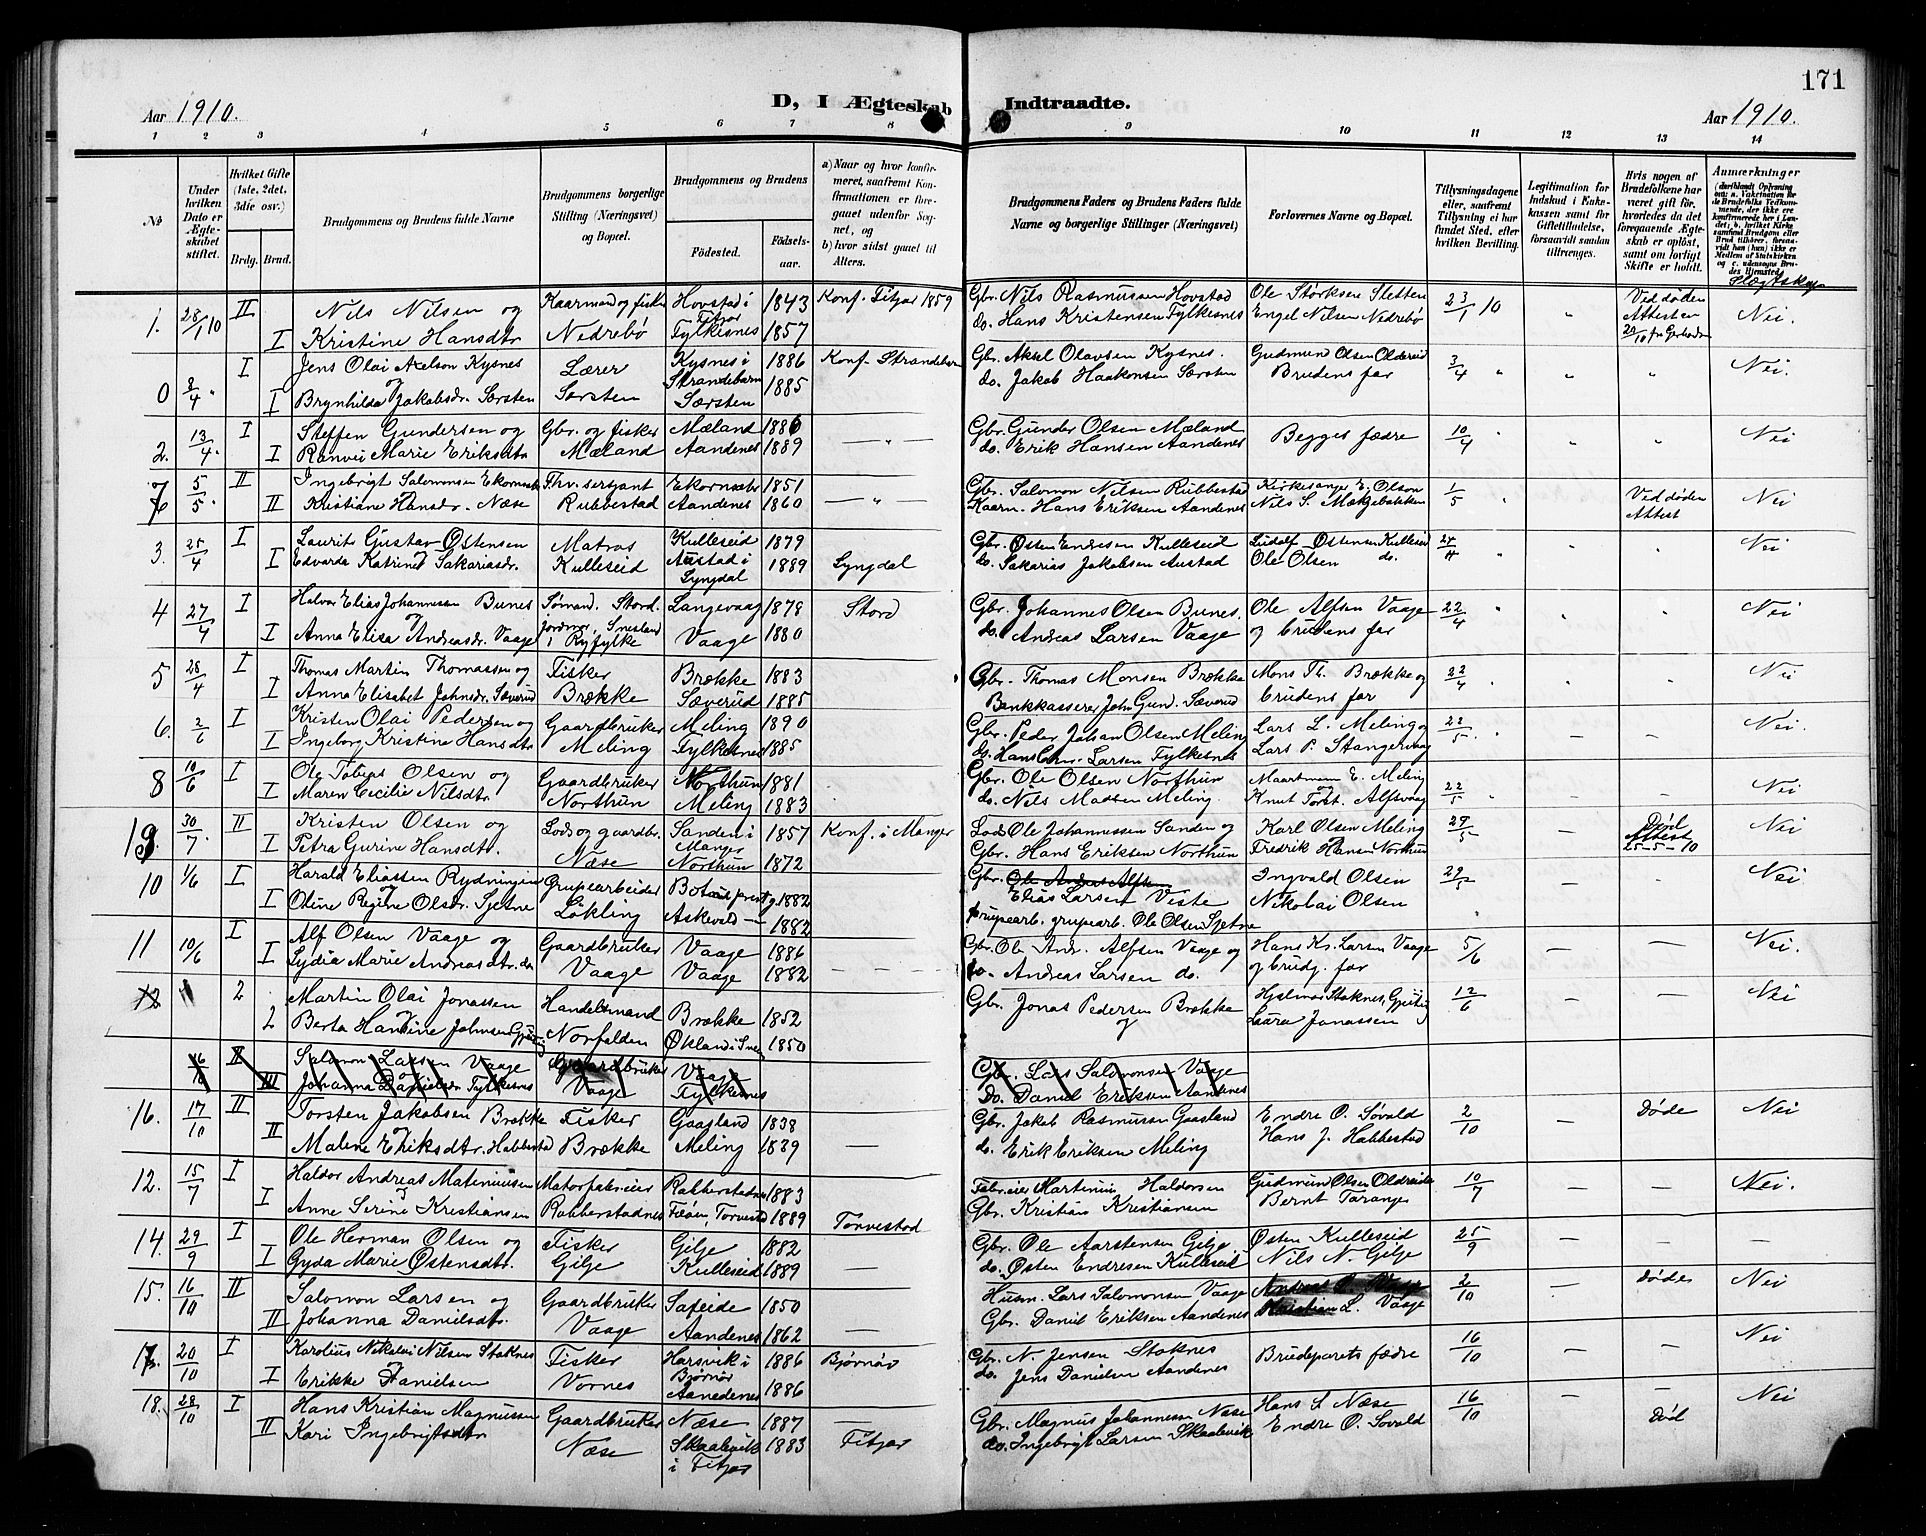 171
Aar 1910.
D, I Ægteskab Indtraadte.
Aar 1910.
1 2 3 4 5 6 7 8 9 10 11 12 13 14
No
Under hvilken Dato er Ægteskabet stiftet.
Hvilket Gifte (1ste, 2det, 3die osv.)
Brdg. Brud.
Brudgommens og Brudens fulde Navne
Brudgommens borgerlige Stilling (Næringsvei) og Bopæl.
Brudgommens og Brudens
Fødested.
Fødselsaar.
a) Naar og hvor konfirmeret, saafremt Konfirmationen er foregaaet udenfor Sognet, og
b) hvor sidst gaaet til Alters.
Brudgommens Faders og Brudens Faders fulde Navne og borgerlige Stillinger (Næringsvei)
Forlovernes Navne og Bopæl.
Tillysningsdagene eller, saafremt Tillysning ei har fundet Sted, efter hvilken Bevilling.
Legitimation for Indskud i Enkekassen samt for Giftetilladelse, forsaavidt saadan tiltrænges.
Hvis nogen af Brudefolkene har været gift før, hvorledes da det foregaaende Ægteskab er opløst, samt om lovligt Skifte er holdt.
Anmærkninger
Slægtskap
1. 28/1 10 II Nils Nilsen og Kaarmand og fisker Hovstad i Fitjar 1843 Konf. Fitjar 1859 Gbr. Nils Rasmussen Hovstad Ole Storksen Sletten 23/1 10 " Ved døden Attest en Nei.
I Kristine Hansdtr Nedrebø Fylkesnes 1857 do. Hans Kristensen Fylkesnes Engel Nilsen Nedrebø
0 8/4 " I Jens Olai Axelson Kysnes Lærer Kysnes i Strandebarm 1886 Konf Strandebarm Gbr. Aksel Olavsen Kysnes. Gudmund Olsen Oldereid 3/4 " " " Nei.
I og Brynhilda Jakobsdr. Sørsten Sørsten Sørsten 1885 do. Jakob Haakonsen Sørsten Brudens far
2. 13/4 " I Steffen Gundersen og Gbr. og fisker Mæland 1886 — " — Gbr. Gunder Olsen Mæland Begges fædre 10/4 " " " Nei
I Ranvei Marie Eriksdtr Mæland Aandenes 1889 do. Erik Hansen Aandenes
7 5/5 " II Ingebrigt Salomonsen Ekornsæter Thv. sersjant Ekornsæter 1851 — " — Gbr. Salomon Nilsen Rubbestad Kirkesanger E. Olson 1/5 " Ved døden Attest Nei
II Kristiane Hansdr. Næse Rubbestad Aandenes 1860 Kaarm. Hans Eriksen Aandenes Nils S. Mækjebakken
3. 25/4 I Laurits Gustav Østensen Matros Kulleseid 1879 Gbr. Østen Endresen Kulleseid Ludolf Østensen Kulleseid 24/4 " " " Nei
I og Edvarda Katrine Sakariasdr. Kulleseid Austad i Lyngdal 1889 Lyngdal do. Sakarias Jakobsen Austad Ole Olsen do.
4 27/4 I Halvor Elias Johannessen Bunes Sømand. Stord. Langevaag 1878 Stord Gbr. Johannes Olsen Bunes. Ole Alfsen Vaage 22/4 " " " Nei
I og Anna Elisa Andreasdr. Vaage Jordmor, i Ryfylke Vaage 1880 do. Andreas Larsen Vaage og brudens far
5 28/4 I Thomas Martin Thomassen og Fisker Brække 1883 Gbr. Thomas Monsen Brække Mons Th. Brække og 22/4 " " " Nei
I Anna Elisabet Johnsdr. Sæverud Brække Sæverud 1885 Bankkasserer John Gund. Sæverud brudens far
6. 2/6 I Kristen Olai Pedersen og Gaardbruker Meling 1890 Gbr. Peder Johan Olsen Meling Lars L. Meling og 22/5 " — — Nei.
I Ingeborg Kristine Hansdtr Meling Fylkesnes 1885 do. Hans Chr. Larsen Fylkesnes Lars P. Stangervaag
8 10/6 I Ole Tobias Olsen og Gaardbruker Northun 1881 Gbr. Ole Olsen Northun Maartmann E. Meling 22/5 " — — Nei
I Maren Cecilie Nilsdtr. Northun Meling 1883 do. Nils Madsen Meling. og Knut Torst. Alfsvaag
13. 30/7 II Kristen Olsen og Lods og gaardbr. Sanden i Manger 1857 Konf. i Manger Lods Ole Johannessen Sanden og Karl Olsen Meling 29/5 — Død Attest 25-5-10 Nei
I Petra Gurine Hansdtr. Næse Northun 1872 Gbr. Hans Eriksen Northun Fredrik Hansen Northun
10 1/6 I Harald Eliassen Rydningen Grupearbeider 1882 Gbr. Ole Andreas Alfsen Ingvald Olsen 29/5 — Nei.
I og Oline Regine Olsdr. Sjetne Løkling Askevold — 1882 Elias Larsen Viste Nikolai Olsen
grupearb. Ole Olsen Sjetne
11 10/6 I Alf Olsen Vaage og Gaardbruker Vaage 1886 Gbr. Ole Andr. Alfsen Vaage og Hans Kr. Larsen Vaage 5/6 — — Nei.
I Lydia Marie Andreasdtr. do Vaage Vaage 1882 — — — do. Andreas Larsen do. og brudg. far
12 2 Martin Olai Jonassen Handelsmand Brække 1852 Gbr. Jonas Pedersen Brække Hjalmar Stoknes, 12/6 — — Nei
2 og Berta Hansine Johnsen Norfolden 1850 og Laura Jonassen
16/10 II Salomon Larsen Vaage Gaardbruker Vaage Gbr. Lars Salomonsen Vaage
III og Johanna Danielsdr Fylkesnes Vaage Fylkesnes Do. Daniel Eriksen Aandenes
16. 17/10 II Torsten Jakobsen Brække Fisker Gaasland 1838 Gbr. Jakob Rasmussen Gaasland Endre O. Søvold 2/10 — Døde Nei
II og Malene Eriksdtr. Habbestad Brække Meling 1839 — do. Erik Eriksen Meling Hans J. Habbestad
12. 15/7 I Haldor Andreas Matinussen Motorfabreier Rabberstadnes 1883 Fabreier Martinus Haldorsen Gudmund Olsen Oldreide 10/7 — — Nei.
I og Anne Serine Kristiansen Rabberstadnes Føen, Torvestad 1889 Torvestad Gbr. Kristian Kristiansen Bernt Taranger
14. 29/9 I Ole Herman Olsen og Fisker Gilje 1882 Gbr. Ole Aarstensen Gilje Østen Kulleseid 25/9 — — —
I Gyda Marie Østensdtr. Gilje Kulleseid 1889 do. Østen Endresen Kulleseid Nils N. Gilje
15. 16/10 II Salomon Larsen og Gaardbruker Søfeide 1850 Husm. Lars Salomonsen Vaage Andreas Vaage 2/10 — Døde Nei
II Johanna Danielsdtr. Vaage Aandenes 1862 — Gbr. Daniel Eriksen Aandenes Kristian L. Vaage
17. 20/10 I Karolius Nikolai Nilsen Stoknes Fisker Harsvik i Bjørnør 1886 Bjørnør Gbr. N. Jensen Stoknes Brudeparets fædre 16/10 — — Nei
I og Erikke Danielsen Vornes Aanedenes 1886 do. Jens Danielsen Aandenes
18. 28/10 I Hans Kristian Magnussen Gaardbruker Næse 1887 — Gbr. Magnus Johannessen Næse Hans S. Næse 16/10 — — Nei
II Kari Ingebrigtsdtr Næse Skaalevik i Fitjar 1883 Fitjar do. Ingebrigt Larsen Skaalevik Endre O. Søvold Død